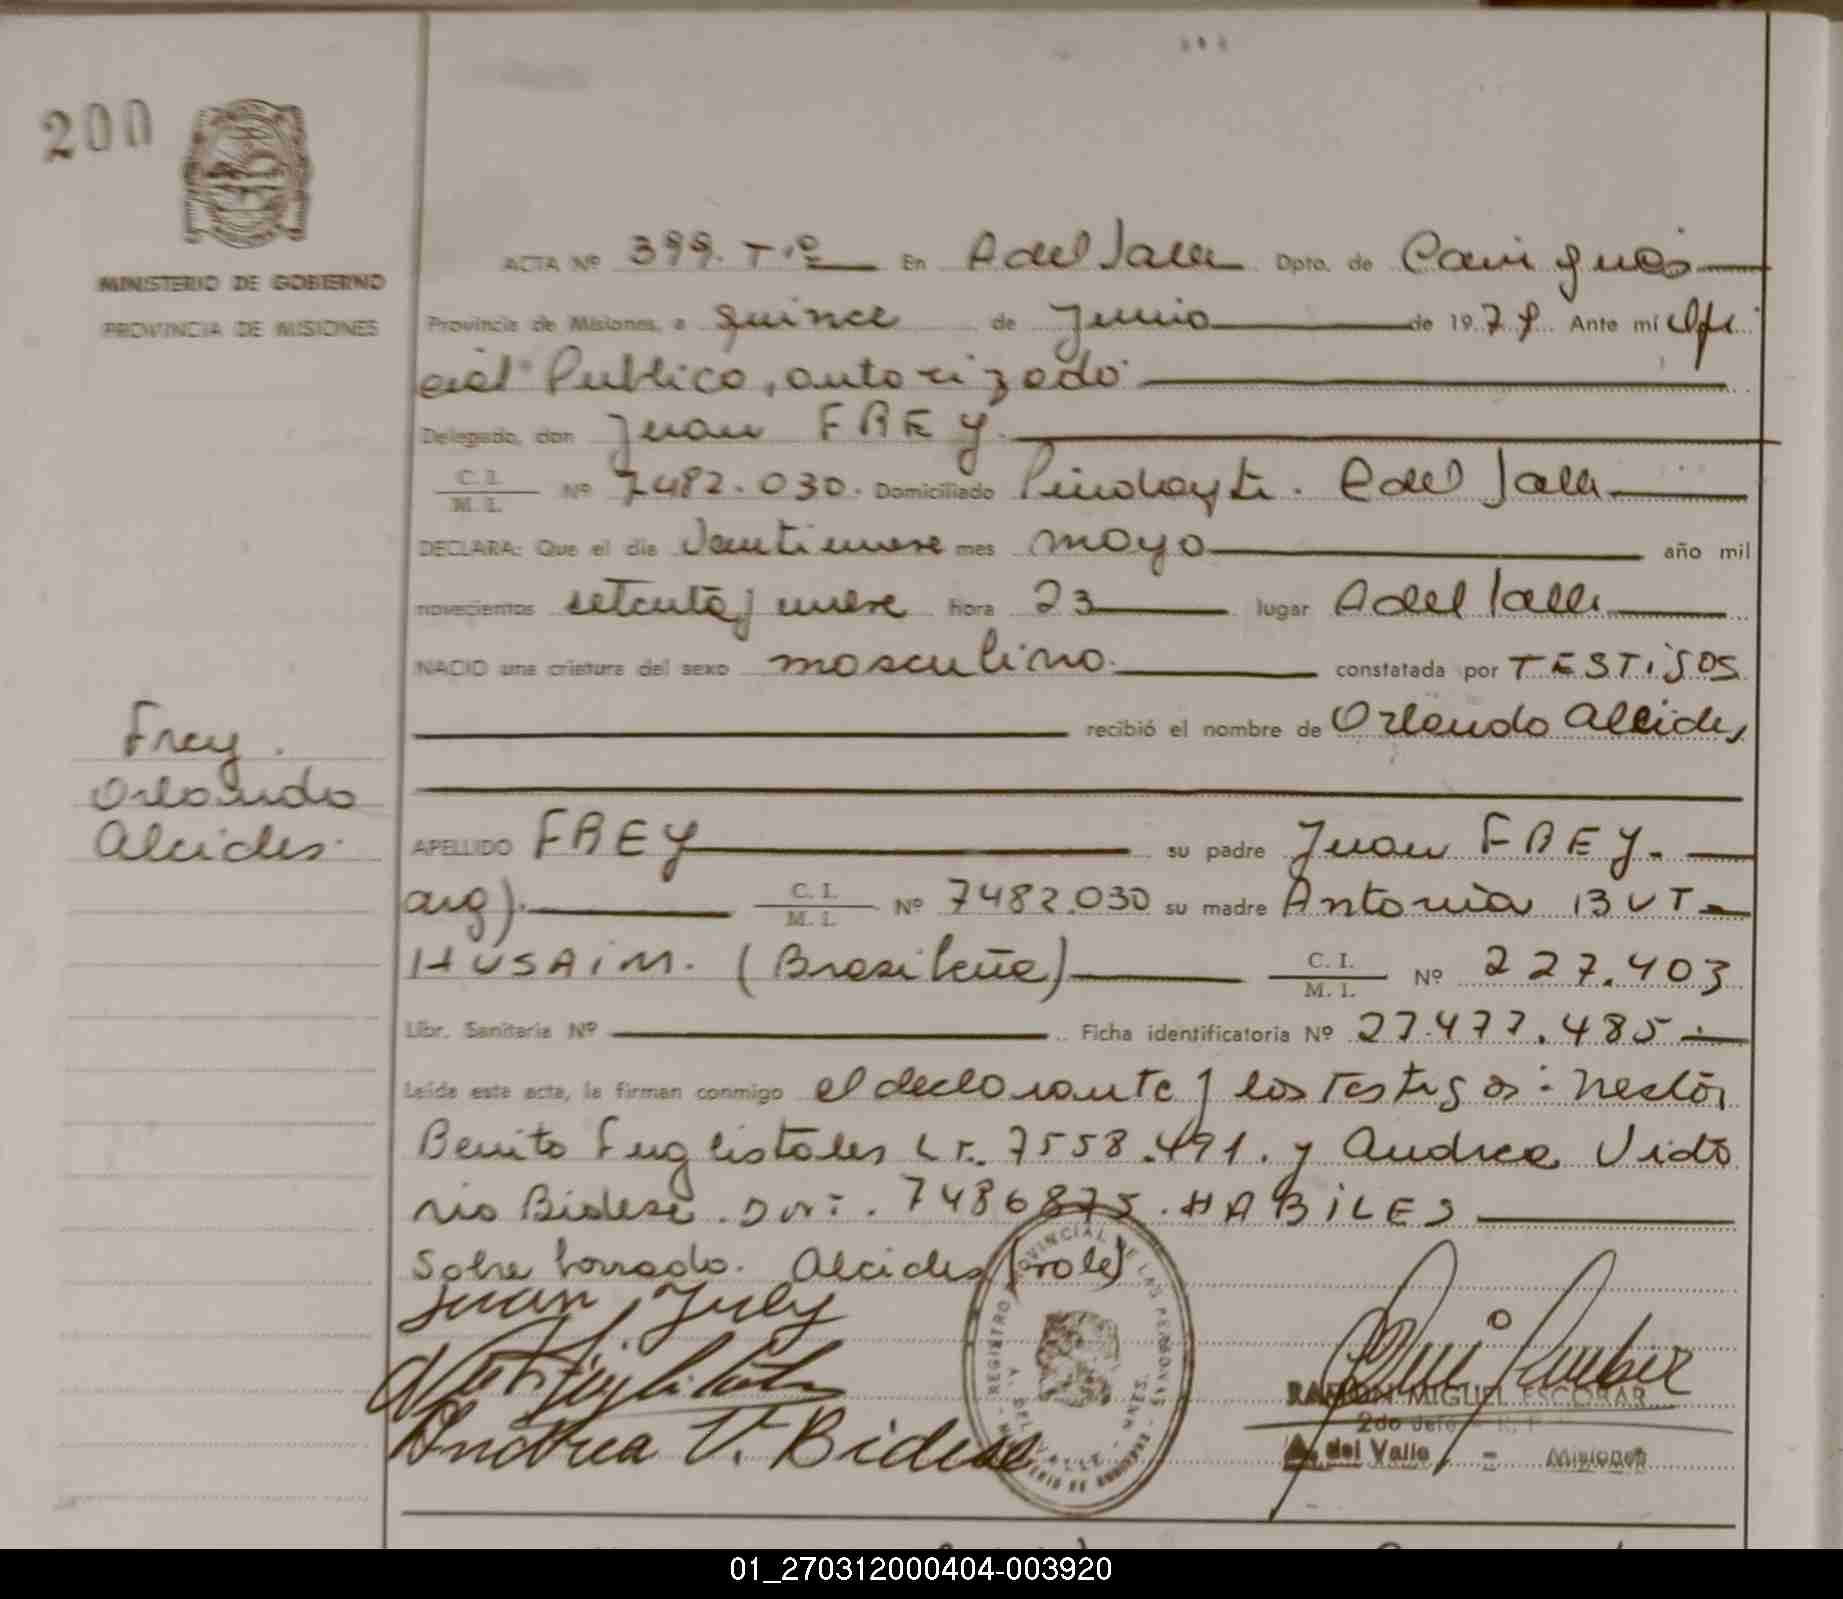 200
MINISTERIO DE GOBIERNO
PROVINCIA DE MISIONES
ACTA Nº 399. Tº En A del Valle Dpto. de Cainguás
Provincia de Misiones, a quince de Junio de 1979 Ante mí Ofi
cial Publico, autorizado
Delegado, don Juan FREY.
C. I.
M. I. Nº 7482.030. Domiciliado Pindayti. A del Valle
DECLARA: Que el día Veintinueve mes mayo año mil
novecientos setenta y nueve hora 23 lugar A del Valle
NACIO una criatura del sexo masculino. constatada por TESTiGOS
recibió el nombre de Orlando Alcides
Frey.
Orlando
Alcides.
APELLIDO FREY su padre Juan FREY.
arg). C. I.
M. I. Nº 7482.030 su madre Antonia BUT
HUSAiM. (Brasileña) C. I.
M. I. Nº 227.403
Libr. Sanitaria Nº Ficha identificatoria Nº 27.477.485
Leída este acta, la firman conmigo el declarante y los Testigos: Nestor
Benito Fuglistaler 7558.491. y Andrea Victo
rio Bidese. DNi. 7486875. HABiLES
Sobre borrado. Alcides (vale)
Juan Frey
Andrea V. Bidese
REGISTRO PROVINCIAL DE LAS PERSONAS
DEL VALLE - MNES.
MINISTERIO DE GOBIERNO
RAMON MIGUEL ESCOBAR
2do Jefe
A. del Valle - Misiones
01_270312000404-003920